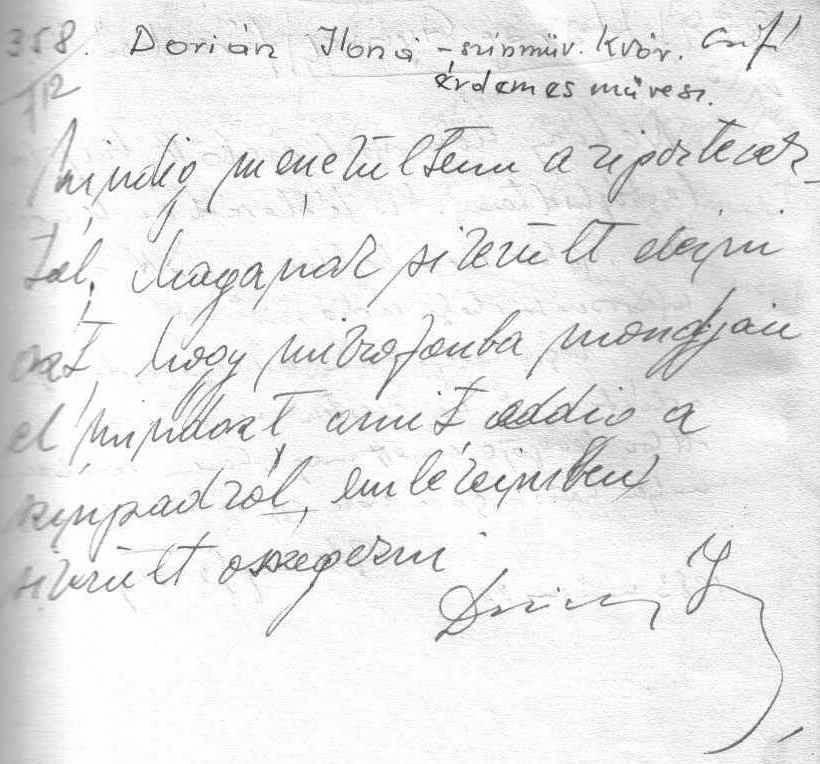 358. Dorián Ilona - színműv. Kvár.
112 érdemes művész.
Mindig menekültem a riporterek-
től. Magának sikerült elérni
azt, hogy mikrofonba mondjam
el mindazt amit eddig a
színpadról, emlékeimben
sikerült összegezni
Dorián I